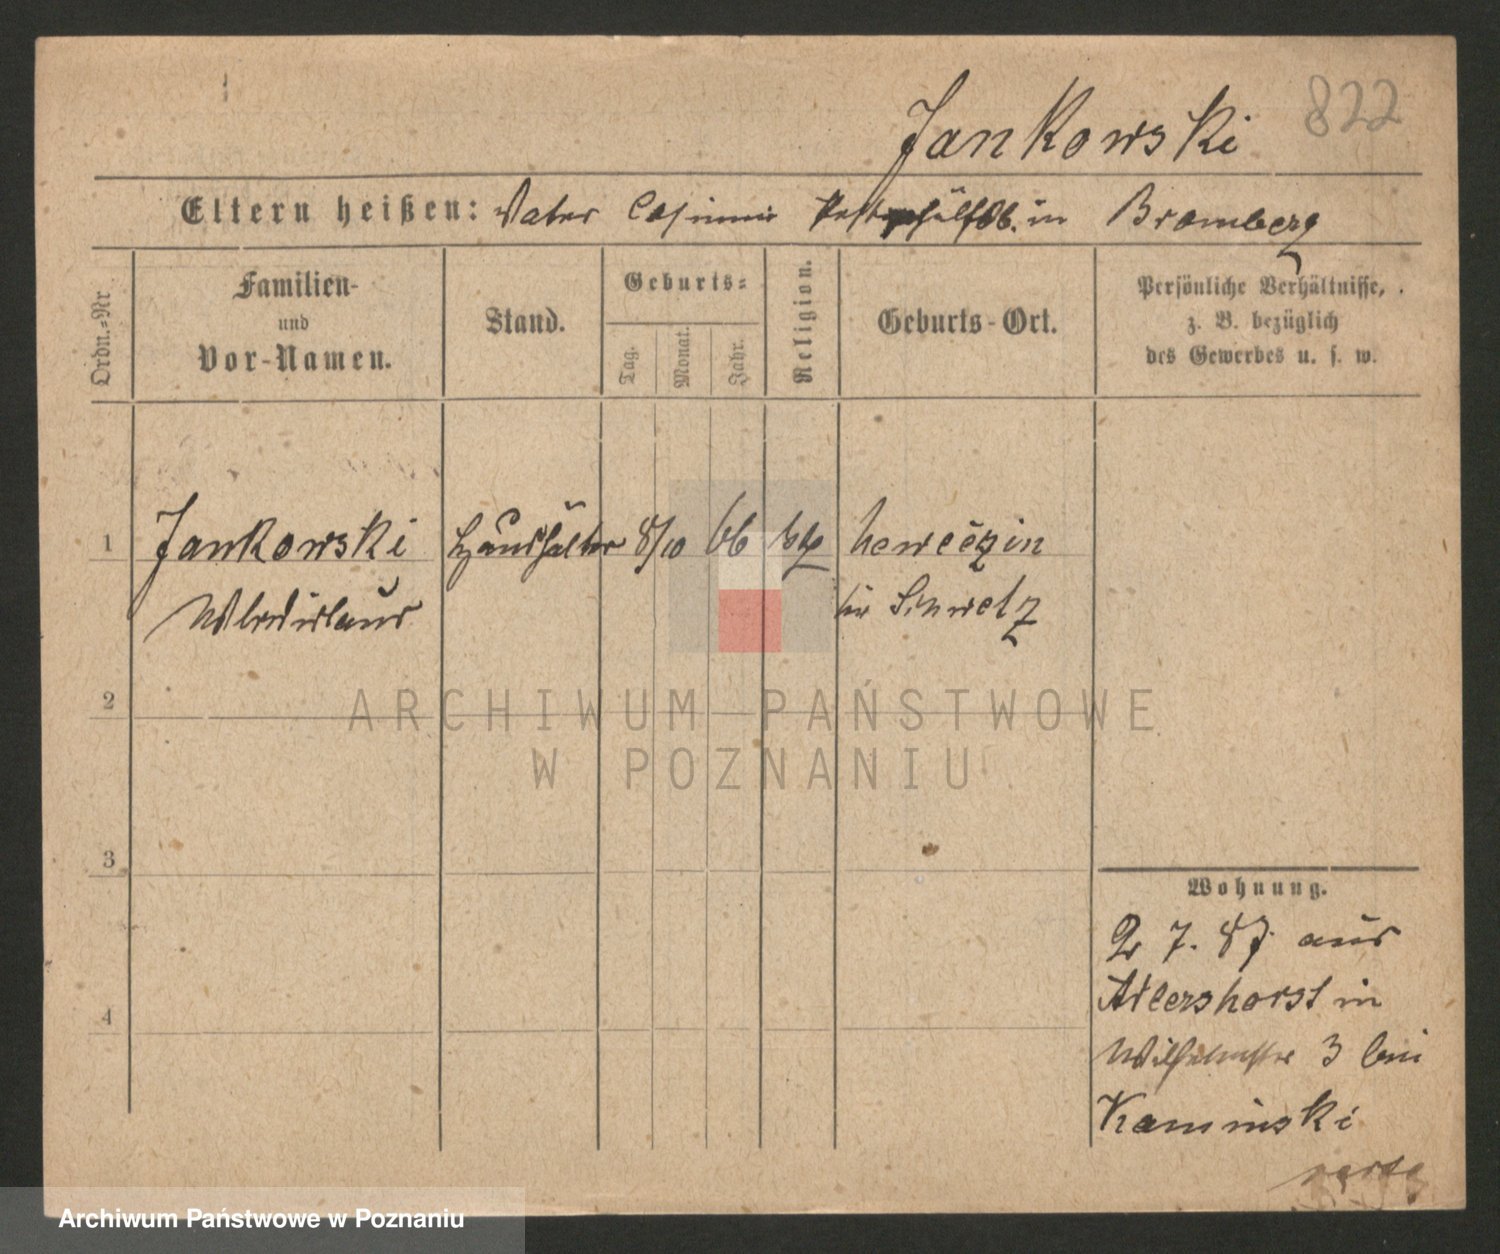 Jankowski 822
Eltern heißen: Vater Casimir in Bromberg
Ordn.-Nr
Familien-
und
Vor-Namen.
Stand.
Geburts-
Tag.
Monat.
Jahr.
Religion.
Geburts-Ort.
Persönliche Verhältnisse,
z. B. bezüglich
des Gewerbes u. s. w.
1 Jankowski Haushälter 8/10 66 kth
Wladislaus Schwetz
2
ARCHIWUM PAŃSTWOWE
W POZNANIU
3
Wohnung.
2 7. 87. aus
Adlershorst in
Wilhelmstr 3 bei
4
Kaminski
Archiwum Państwowe w Poznaniu